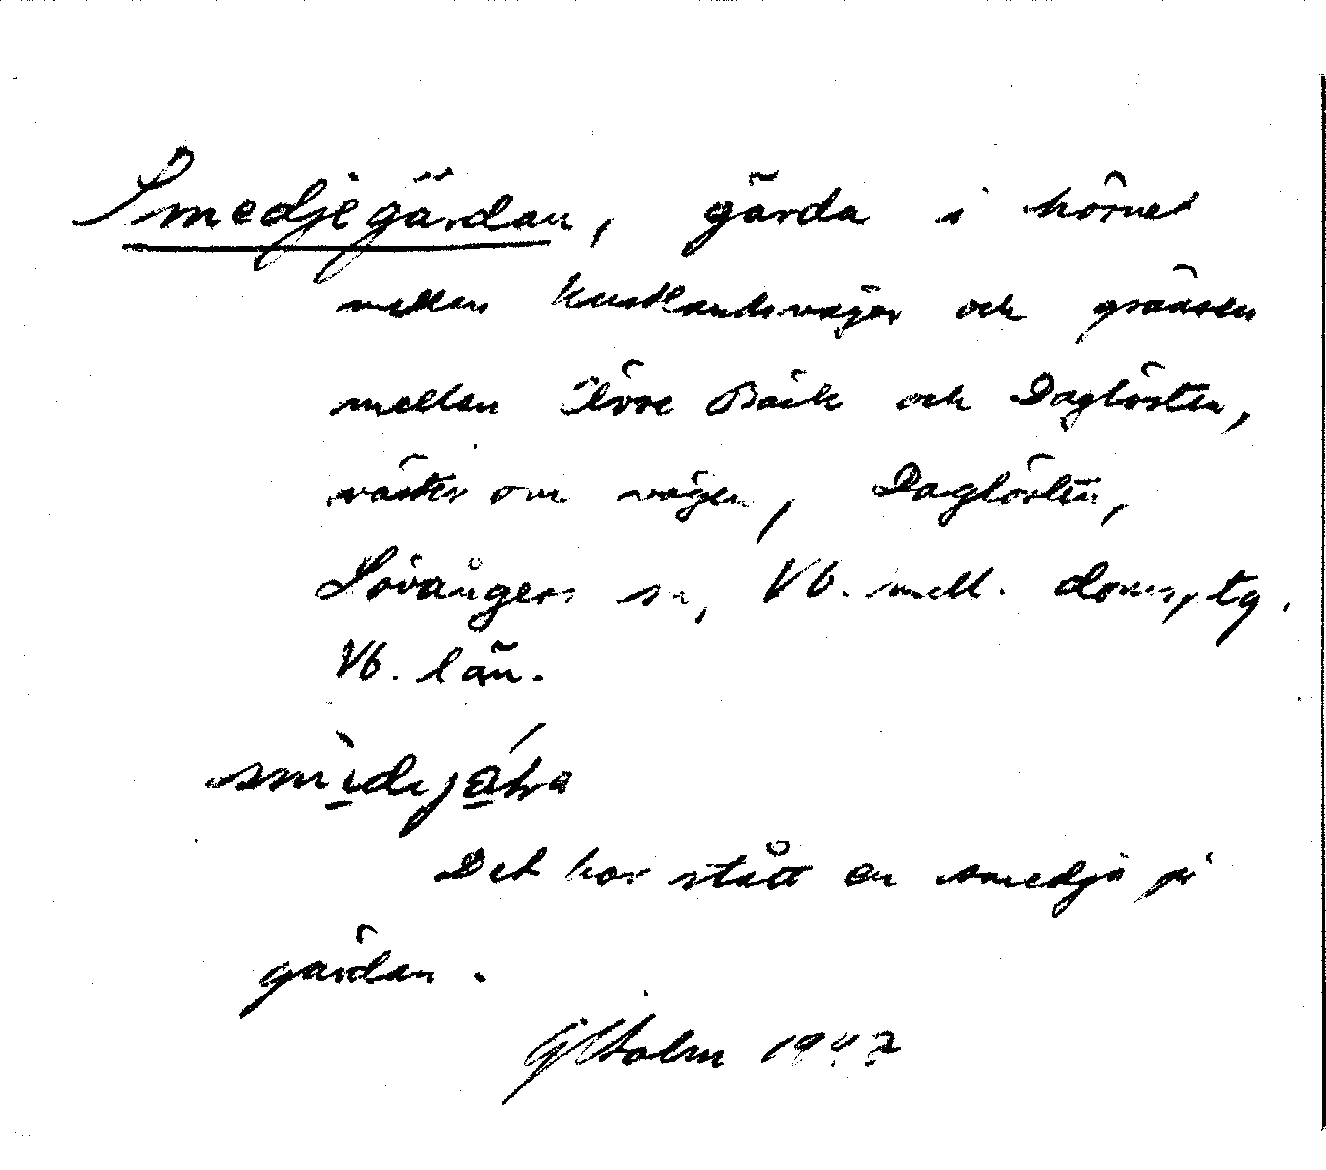 Smedjegärdan, gärda i hörnet
mellan kustlandsvägen och gränsen
mellan Övre Bäck och Daglösten,
väster om vägen, Daglösten,
Lövångers sn, Vb. mell. doms, tg.
Vb. län.
Det har stått en smedja på
gärdan.
G Holm 1947